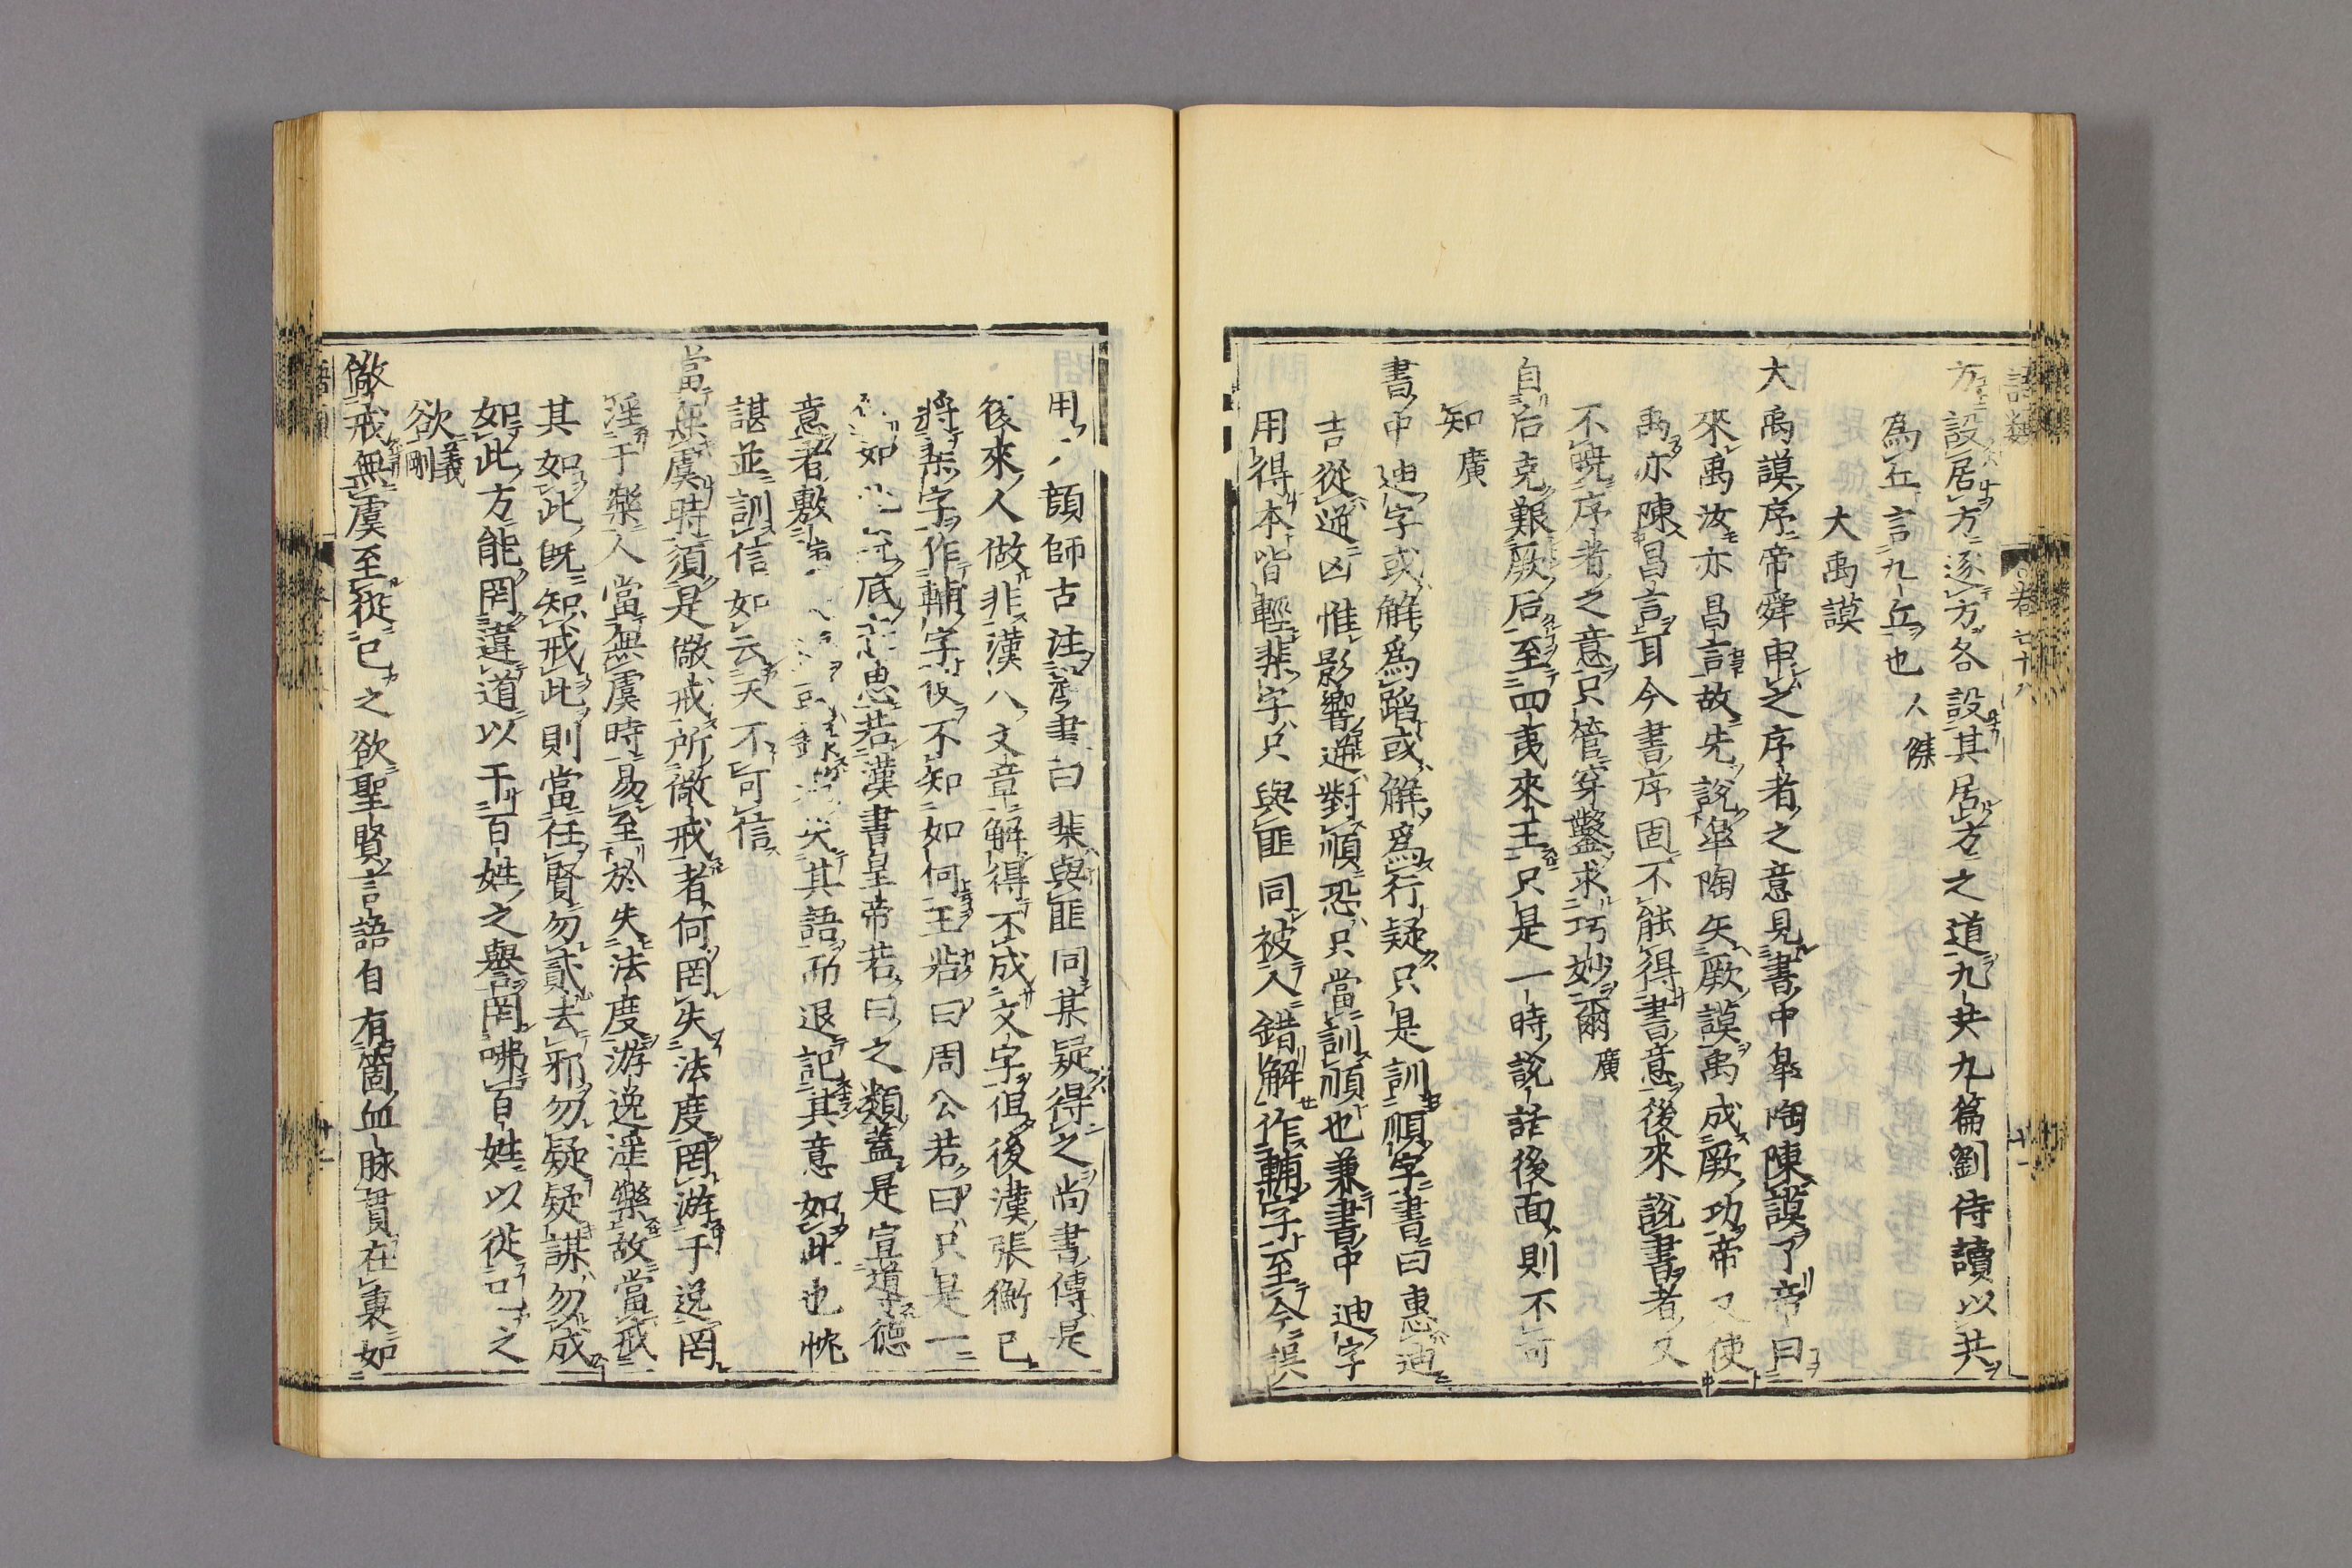 方設居方逐方各設其居方之道九共九篇劉侍讀以共
為丘言九丘也人傑
大禹謨
大禹謨序帝舜申之序者之意見書中皐陶陳謨了帝曰
來禹汝亦昌言故先說皐陶矢厥謨禹成厥功帝又使
禹亦陳昌言耳今書序固不能得書意後來說書者又
不曉序者之意只管穿鑿求巧妙爾廣
自后克艱厥后至四夷來王只是一時說話後面則不可
知廣
書中迪字或解為蹈或解為行疑只是訓順字書曰惠迪
吉從逆凶惟影響逆對順恐只當訓順也兼書中迪字
用得本皆輕棐字只與匪同被人錯解作輔字至今誤
用顔師古注漢書曰棐與匪同某疑得之尚書傳是
後來人做非漢人文章解得不成文字但後漢張衡已
將棐字作輔字使不知如何王若曰周公若曰只是一
如底意思若漢書皇帝若曰之類蓋是宣導德
意者敷失其語而退記其意如此也忱
諶並訓信如云天不可信
當無虞時須是儆戒所儆戒者何罔失法度罔游于逸罔
淫于樂人當無虞時易至於失法度游逸淫樂故當戒
其如此既知戒此則當任賢勿貳去邪勿疑疑謀勿成
如此方能罔違道以干百姓之譽罔咈百姓以從己之
欲義剛
儆戒無虞至從己之欲聖賢言語自有箇血脉貫在裏如
語類
卷七十八